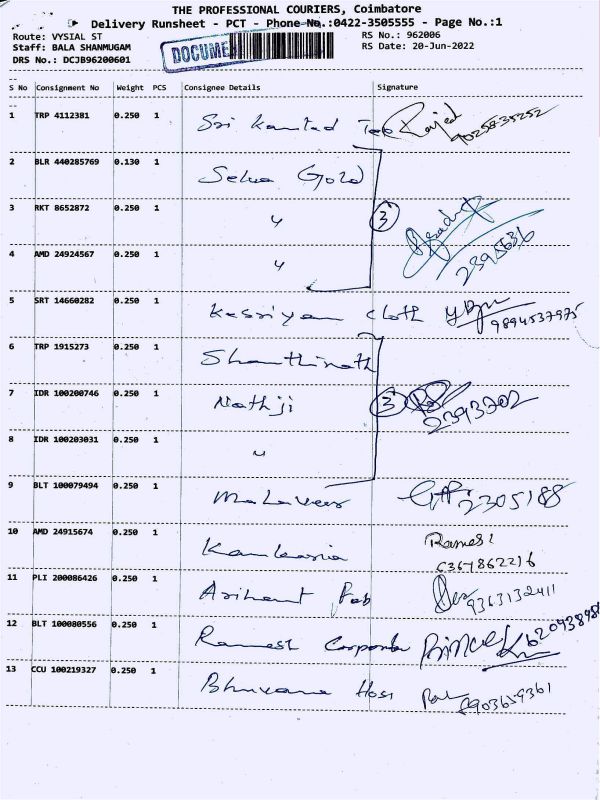 THE PROFESSIONAL COURIERS, Coimbatore
Delivery Runsheet - PCT - Phone No.:0422-3505555 - Page No.:1
Route: VYSIAL ST
RS No.: 962006
Staff: BALA SHANMUGAM
DOCUME
RS Date: 20-Jun-2022
DRS No.: DCJB96200601
S No Consignment No Weight PCS Consignee Details Signature
1 TRP 4112381 0.250 1 Sri
9025835252
2 BLR 440285769 0.130 1 Selva Gold
3 RKT 8652872 0.250 1 " 3
4 AMD 24924567 0.250 1 " 2395636
5 SRT 14660282 0.250 1 Kesriyam Cloth 9894537975
6 TRP 1915273 0.250 1 Shanthinath
7 IDR 100200746 0.250 1 Nathji 3 2393702
8 IDR 100203031 0.250 1 "
9 BLT 100079494 0.250 1 Mahaveer 2305188
10 AMD 24915674 0.250 1 Ramesh
11 PLI 200086426 0.250 1 Arihant Fab 9363132411
12 BLT 100080556 0.250 1 Ramesh Prince
13 CCU 100219327 0.250 1 Bhuvana Hosi 8903659361